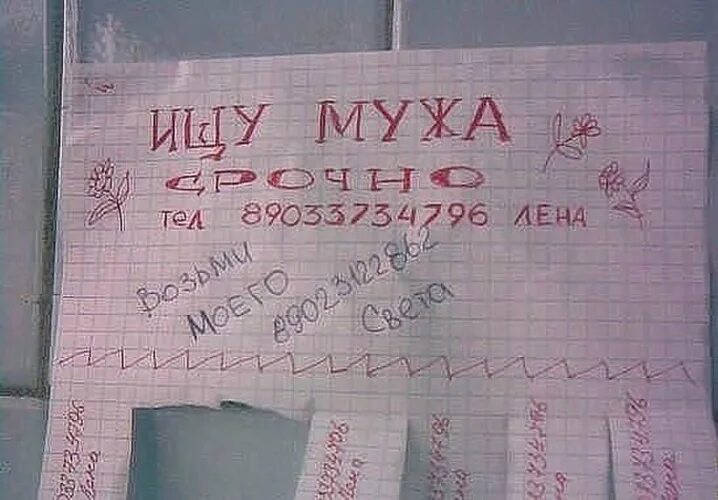 ИЩУ МУЖА
СРОЧНО
тел 89033734796 ЛЕНА
Возьми
МОЕГО
89023122862
Света
Лена
Лена